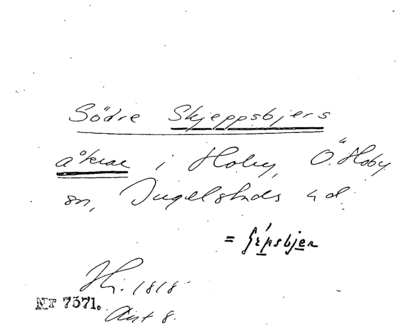 Södre Skjeppsbjers
åkrar i Hoby, Ö. Hoby
sn, Ingelstads hd.
= Sjɛpsbjɛn
Hi. 1818
Nr 7371.
Akt 8.